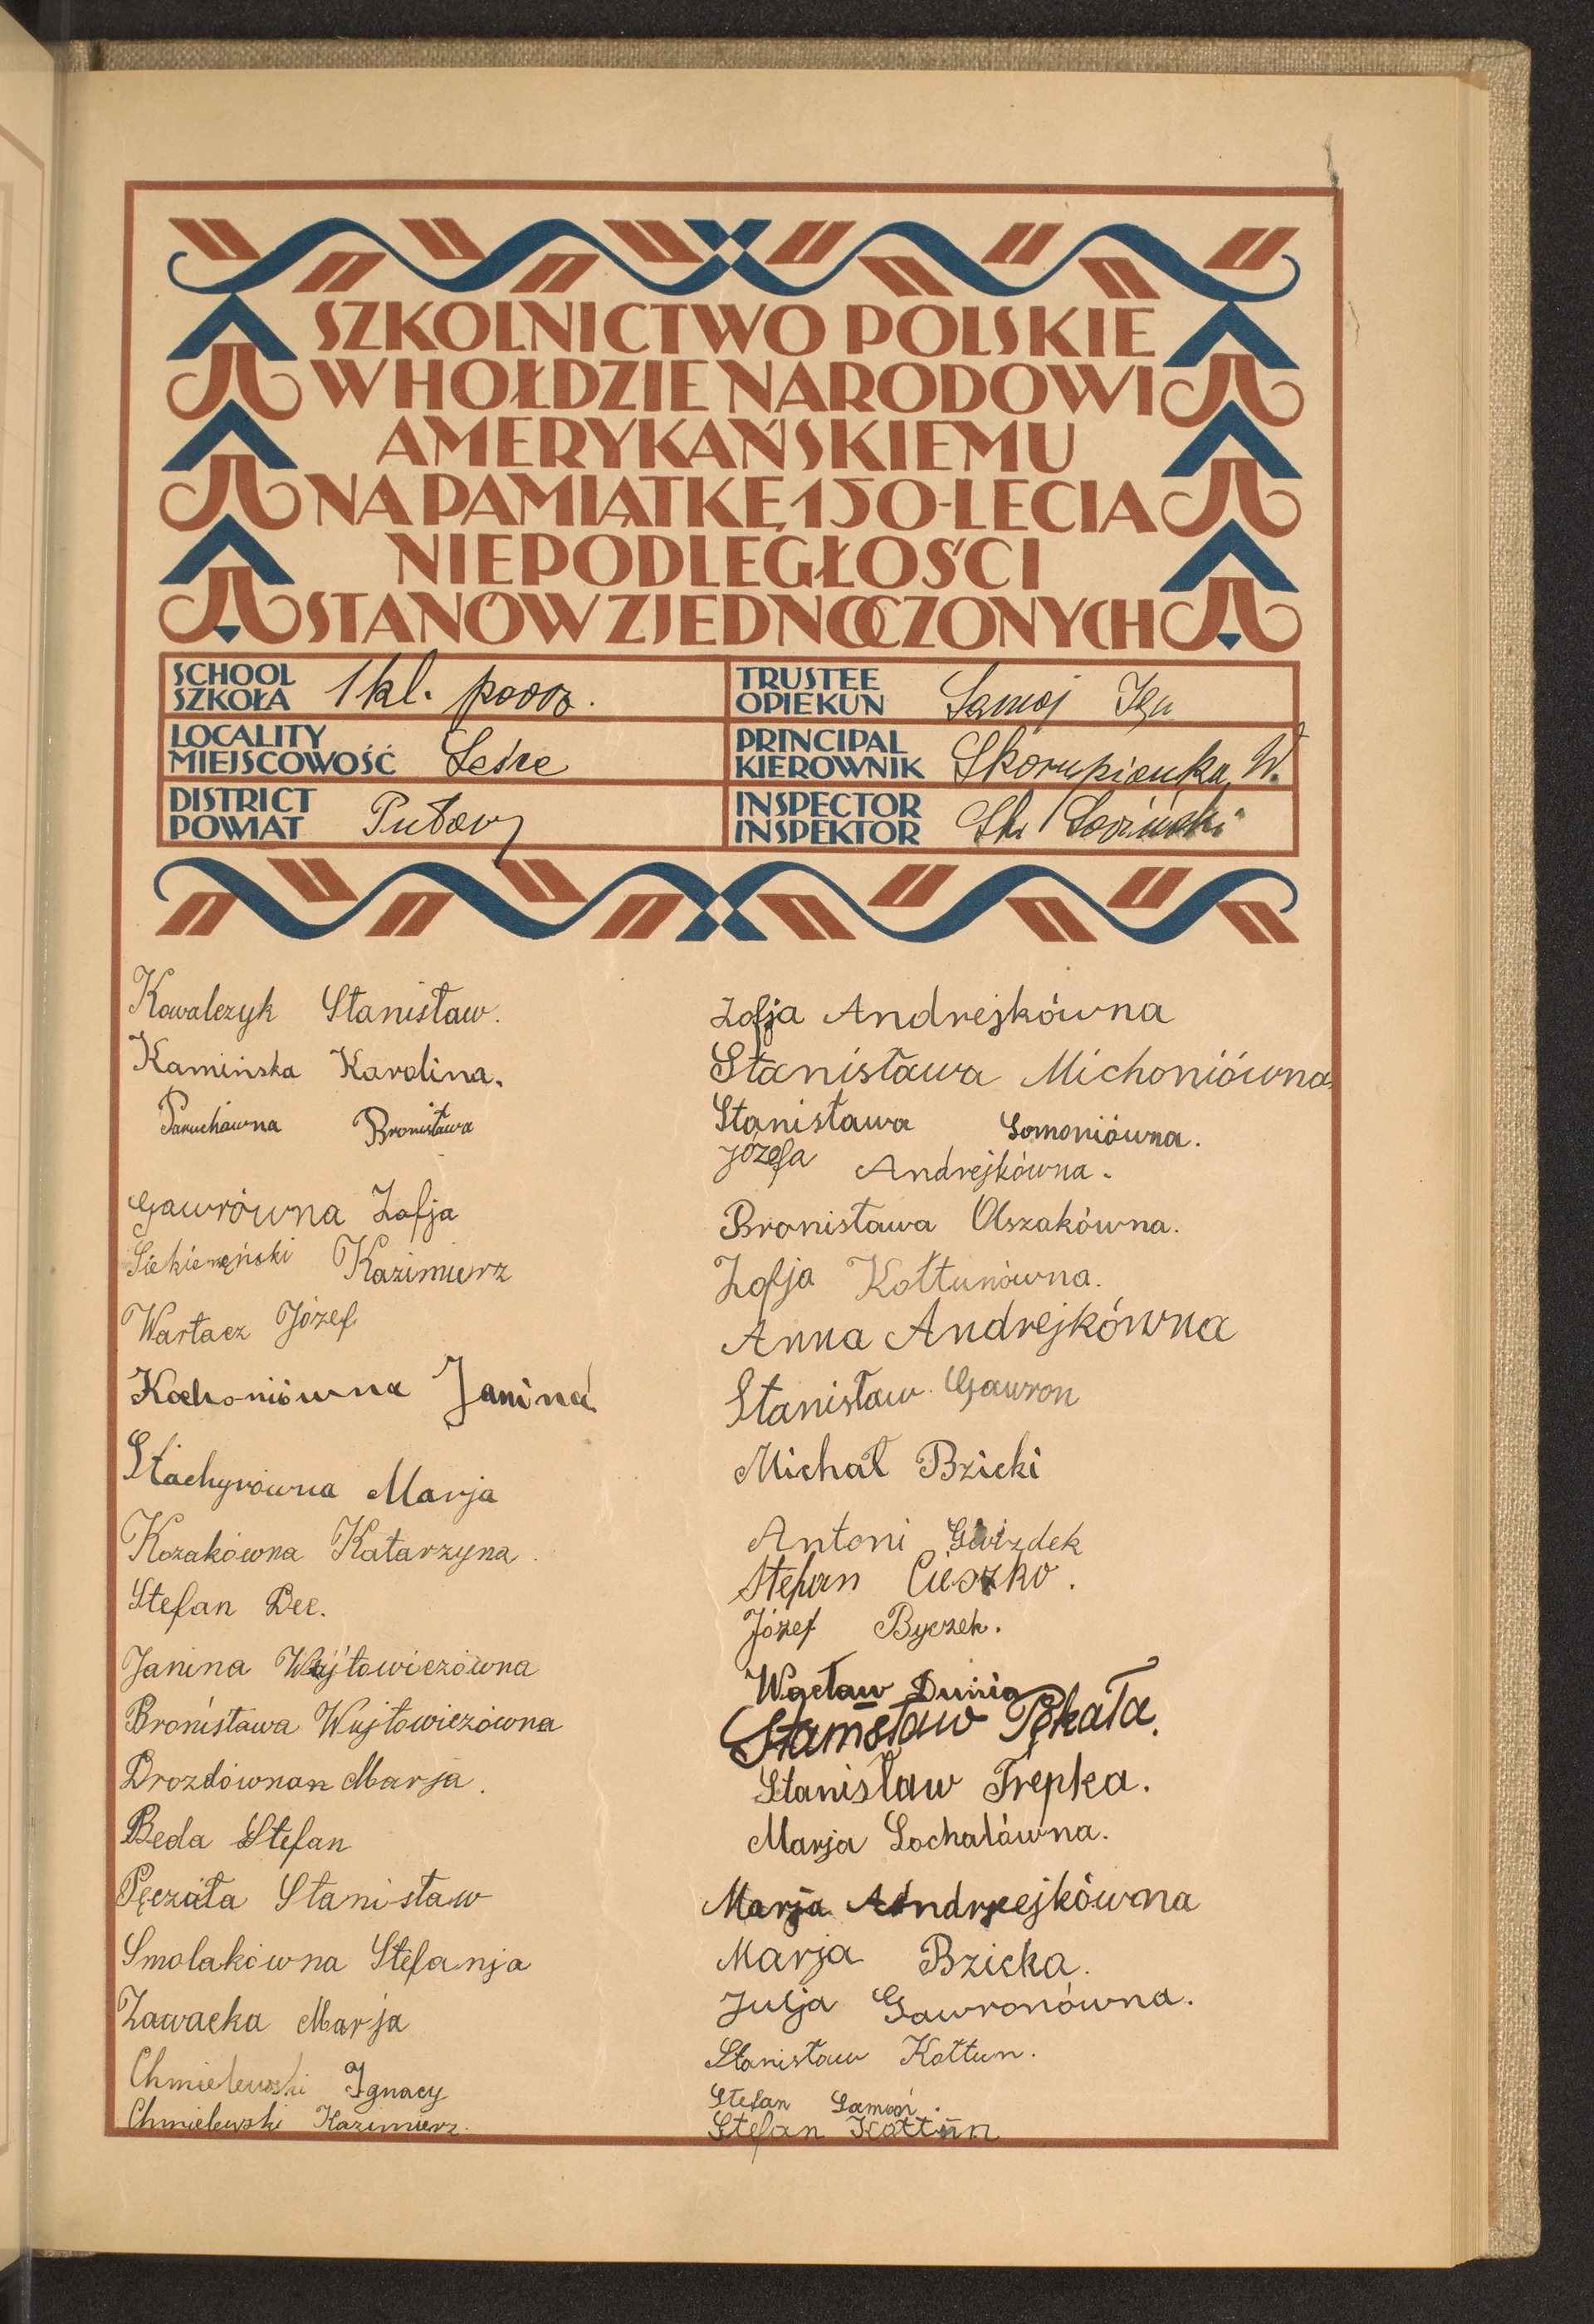 SZKOLNICTWO POLSKIE
W HOŁDZIE NARODOWI
AMERYKAŃSKIEMU
NA PAMIĄTKĘ 150-LECIA
NIEPODLEGŁOŚCI
STANÓW ZJEDNOCZONYCH
SCHOOL
SZKOŁA 1 kl.
LOCALITY
MIEJSCOWOŚĆ
DISTRICT
POWIAT Puławy
TRUSTEE
OPIEKUN
PRINCIPAL
KIEROWNIK Skorupianka W.
INSPECTOR
INSPEKTOR
Kowalczyk Stanisław.
Kamińska Karolina.
Paruchówna Bronisława
Gawrówna Zofja
Kazimierz
Wartacz Józef
Kochoniówna Janina
Stachyrówna Marja
Kozakówna Katarzyna.
Stefan Dec.
Janina Wójtowiczówna
Bronisława Wujtowiczówna
Marja.
Beda Stefan
Pęczała Stanisław
Smolakówna Stefanja
Zawacka Marja
Chmielewski Ignacy
Chmielewski Kazimierz.
Zofja Andrejkówna
Stanisława Michoniówna
Stanisława Somoniówna.
Józefa Andrejkówna.
Bronisława Olszakówna.
Zofja Kołtunówna.
Anna Andrejkówna
Stanisław Gawron
Michał Bzicki
Antoni Gwizdek
Stefan Cieszko.
Józef Byczek.
Wacław Dunia
Stanisław Pękała.
Stanisław Trepka.
Marja Sochalówna.
Marja Andrzejkówna
Marja Bzicka.
Julja Gawronówna.
Stanisław Kołtun.
Stefan
Stefan Kołtun